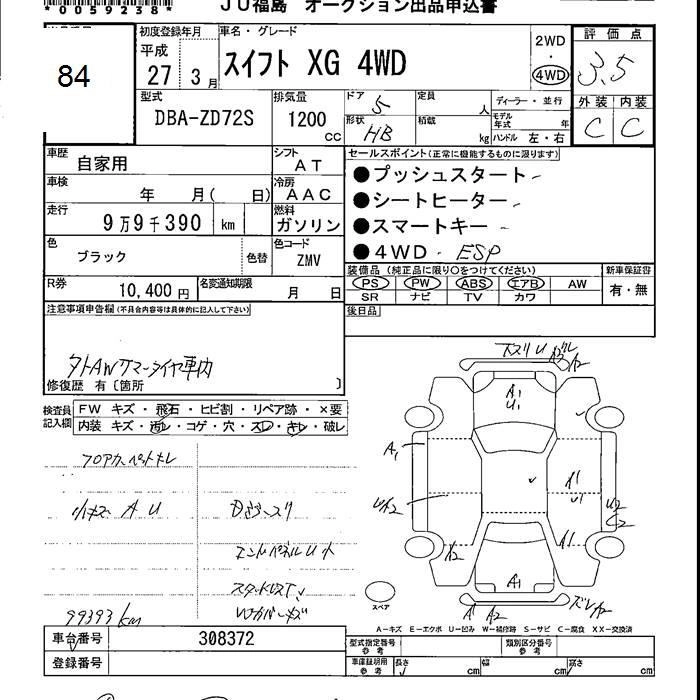 *0059238*
JU福島 オークション出品申込書
84
初度登録年月
平成
27年 3月
車名・グレード
スイフト XG 4WD
2WD
・
4WD
評価点
3.5
型式
DBA-ZD72S
排気量
1200
cc
ドア
5
定員
人
ディーラー・並行
外装
内装
形状
HB
積載
kg
モデル年式
年
ハンドル 左・右
C
C
車歴
自家用
シフト
AT
セールスポイント(正常に機能するものに限ります)
車検
年 月( 日)
冷房
AAC
●プッシュスタート
●シートヒーター
●スマートキー
●4WD・ESP
走行
9万9千390 km
燃料
ガソリン
色
ブラック
色替
色コード
ZMV
装備品(純正品に限り〇をつけてください)
新車保証書
PS
PW
ABS
エアB
AW
有・無
SR
ナビ
TV
カワ
R券
10,400円
名変通知期限
月 日
後日品
注意事項申告欄(不具合内容等は具体的に記入して下さい)
外AWサマータイヤ車内
修復歴 有〔箇所 〕
検査員記入欄
FW キズ・飛石・ヒビ割・リペア跡・×要
内装 キズ・汚レ・コゲ・穴・スレ・キレ・破レ
フロアカーペットキレ
小キズ A U
エンドパネルU
99393km
A1
U1
A1
A1
U1
U2
C2
A2
A1
A1
A A2
スペア
A-キズ E-エクボ U-凹み W-補修跡 S-サビ C-腐食 XX-交換済
車台番号
308372
登録番号
型式指定番号
参考
類別区分番号
参考
車庫証明用
参考
長さ
cm
幅
cm
高さ
cm